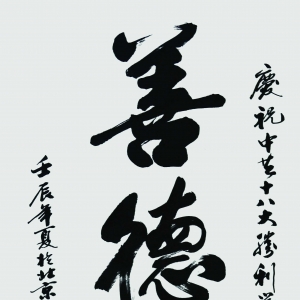 慶祝中共十八大勝利
善德
壬辰年夏於北京